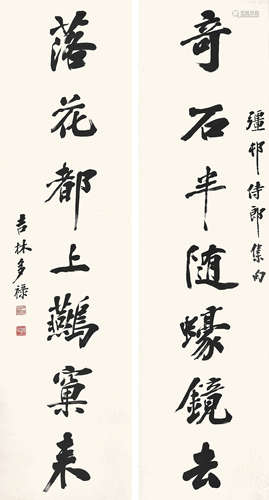 彊邨侍郎集句
奇石半随蠔鏡去
落花都上鷰窠来
吉林多禄